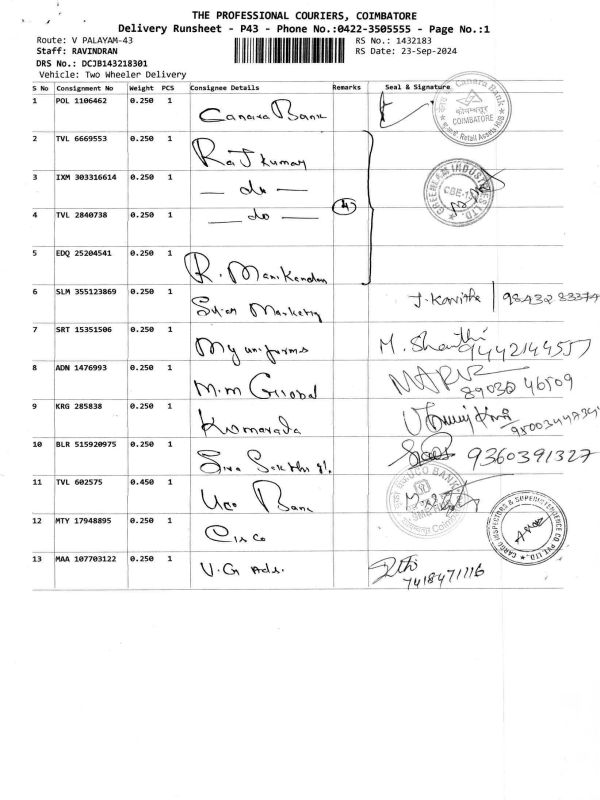 THE PROFESSIONAL COURIERS, COIMBATORE
Delivery Runsheet - P43 - Phone No.:0422-3505555 - Page No.:1
Route: V PALAYAM-43 RS No.: 1432183
Staff: RAVINDRAN RS Date: 23-Sep-2024
DRS No.: DCJB143218301
Vehicle: Two Wheeler Delivery
S No Consignment No Weight PCS Consignee Details Remarks Seal & Signature
1 POL 1106462 0.250 1 Canara Bank
Canara Bank
COIMBATORE
Retail Assets HUB
2 TVL 6669553 0.250 1 Raj kumar
3 IXM 303316614 0.250 1 — do —
4 TVL 2840738 0.250 1 — do — 4
5 EDQ 25204541 0.250 1 R. Manikandan
6 SLM 355123869 0.250 1 J. Kavitha 98432 83374
7 SRT 15351506 0.250 1 My uniforms M. Shanthi
9442144557
8 ADN 1476993 0.250 1 M.M Global
89030 46509
9 KRG 285838 0.250 1
10 BLR 515920975 0.250 1 Siva Sakthi 9360391327
11 TVL 602575 0.450 1 Uco Bank
UCO BANK
12 MTY 17948895 0.250 1 Cisco
CARGO INSPECTORS & SUPERINTENDENCE CO PVT. LTD.
13 MAA 107703122 0.250 1 V.G Ads.
7418471116